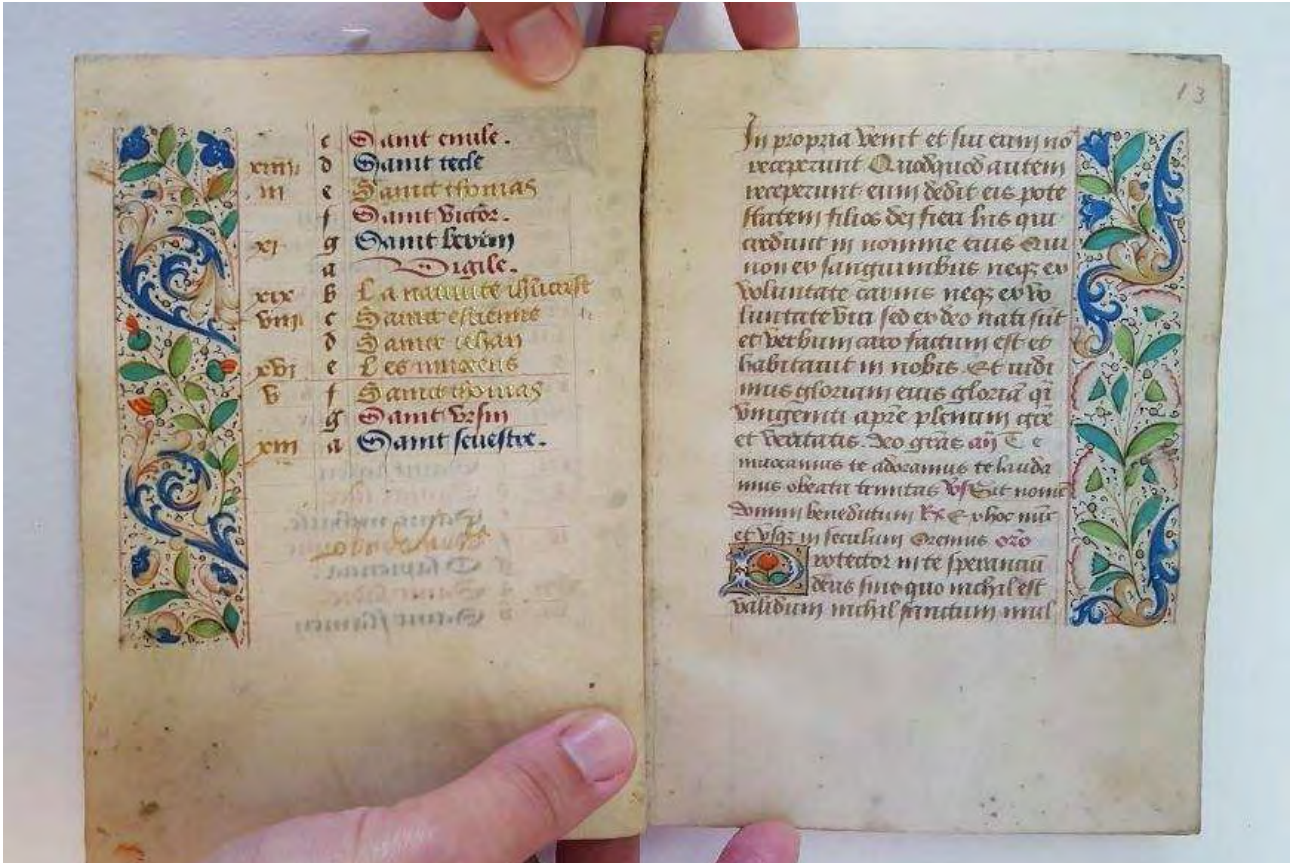 c Saint emile.
xiiii d Saint tecle
iii e Saint thomas
f Saint victor.
xi g Saint
a Vigile.
xix b La nativite
viii c Saint estienne
d Saint iehan
xvi e Les innocens
v f Saint thomas
g Saint ursin
xiii a Saint sevestre.
13
In propria venit et sui eum nō
receperunt Quodquod autem
receperunt eum dedit eis pote
statem filios dei fieri his qui
credunt in nomine eius Qui
non ex sanguinibus neqz ex
voluntate carnis neqz ex vo
luntate viri sed ex deo nati sūt
et verbum caro factum est et
habitavit in nobis. Et vidi
mus gloriam eius gloriā qi
vnigeniti apre plenum gre
et veritatis. Deo gras añ T e
inuocamus te adoramus te lauda
mus o beata trinitas Vs Sit nomē
domini benedictum Rx Ex hoc nūc
et vsqz in seculum Oremus oro
Protector in te sperancium
deus sine quo nichil est
validum nichil sanctum mul